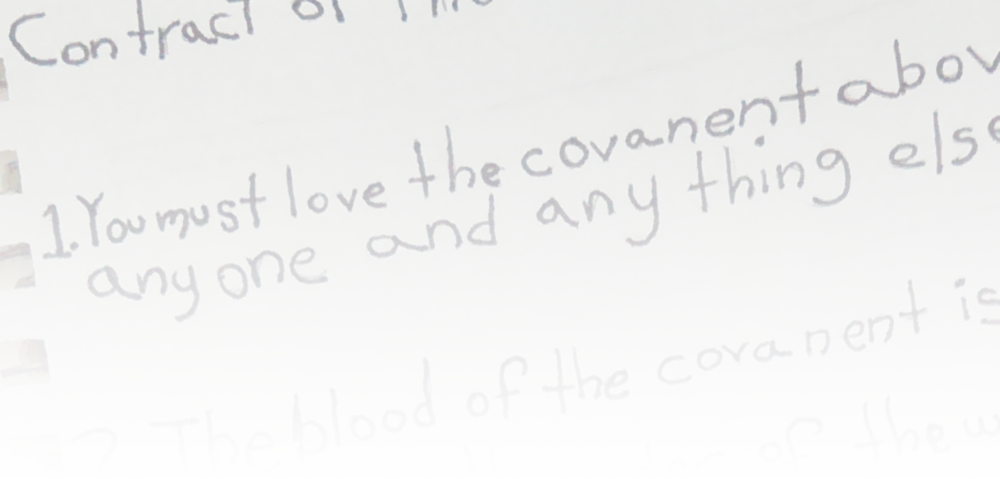 Contract of
1. You must love the covanent
anyone and any thing
2 The blood of the covanent is
of the